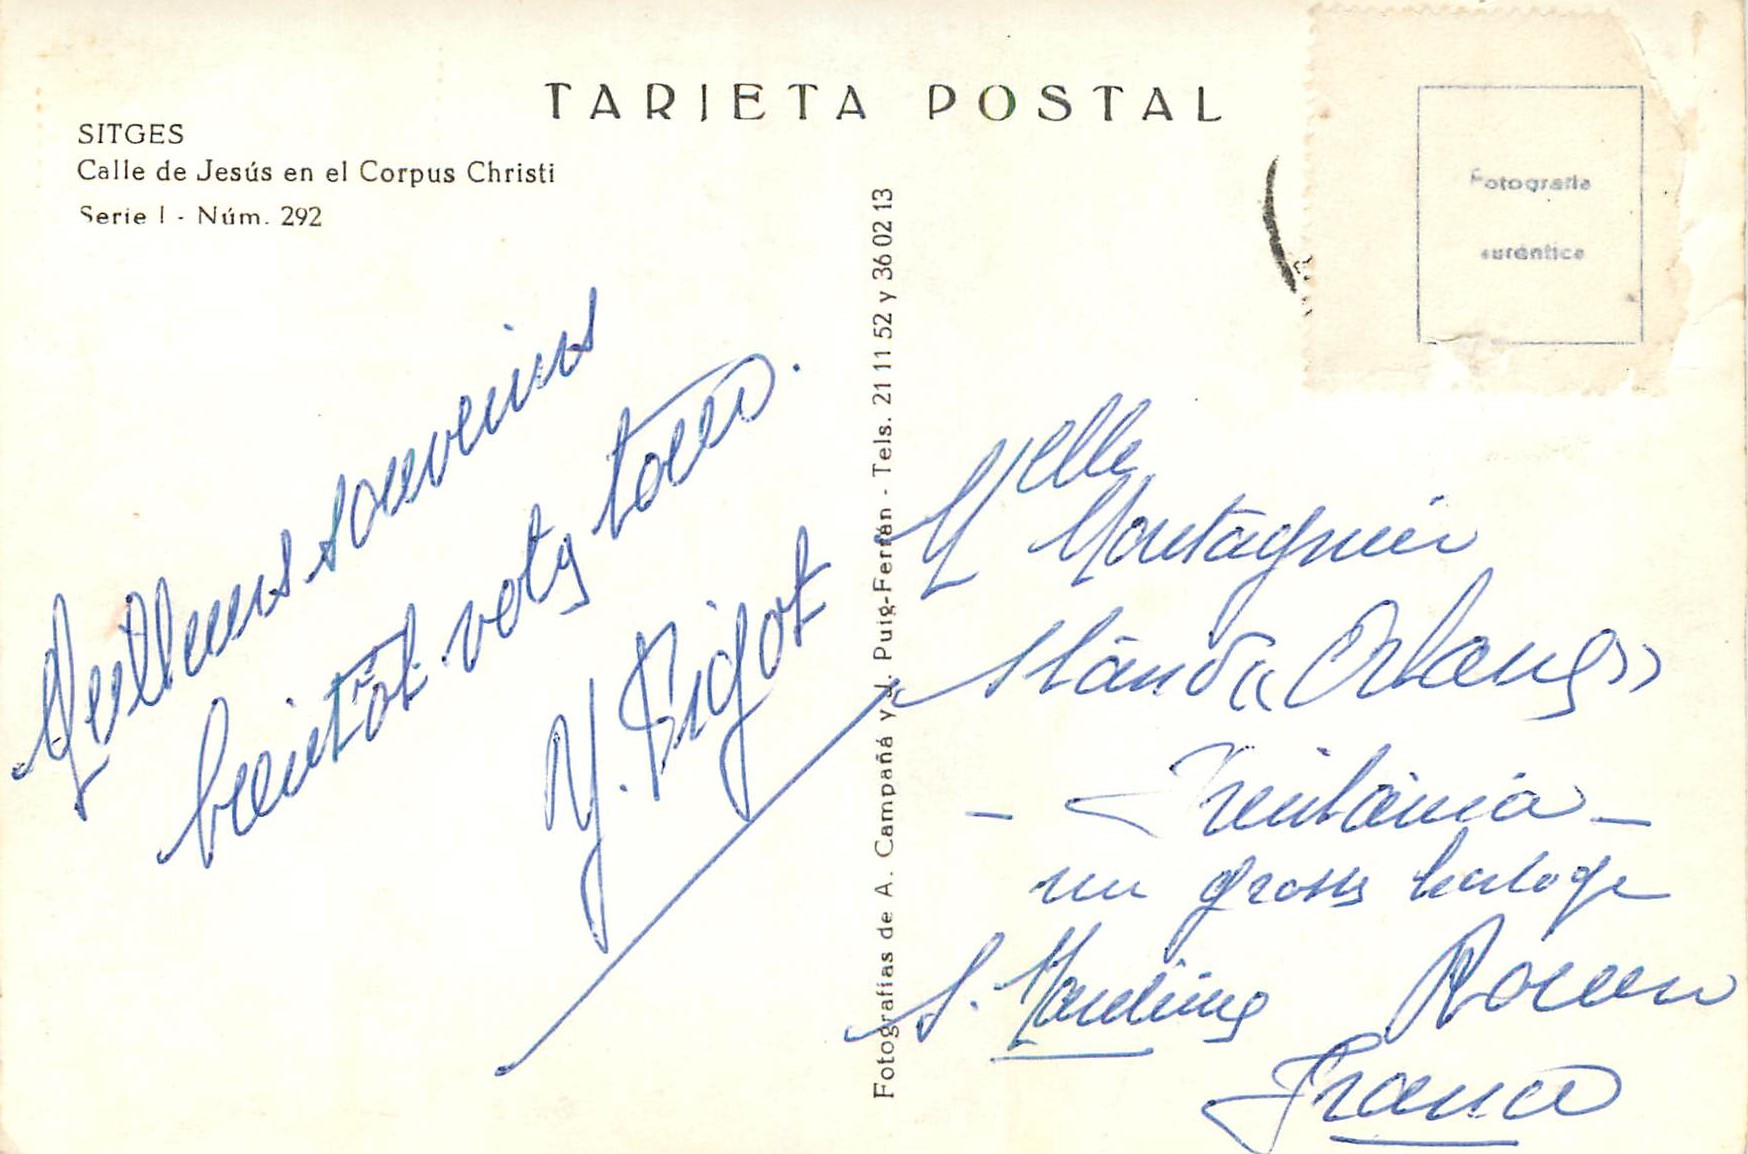 TARJETA POSTAL
SITGES
Calle de Jesús en el Corpus Christi
Serie I - Núm. 292
Fotografía
auténtica
Fotografías de A. Campañá y J. Puig-Ferrán - Tels. 21 11 52 y 36 02 13
Meilleurs souvenirs
bientôt votg tous.
Y. Bigot
Melle
Montagnier
Stand « Orlane »
gross horloge
Rouen
France